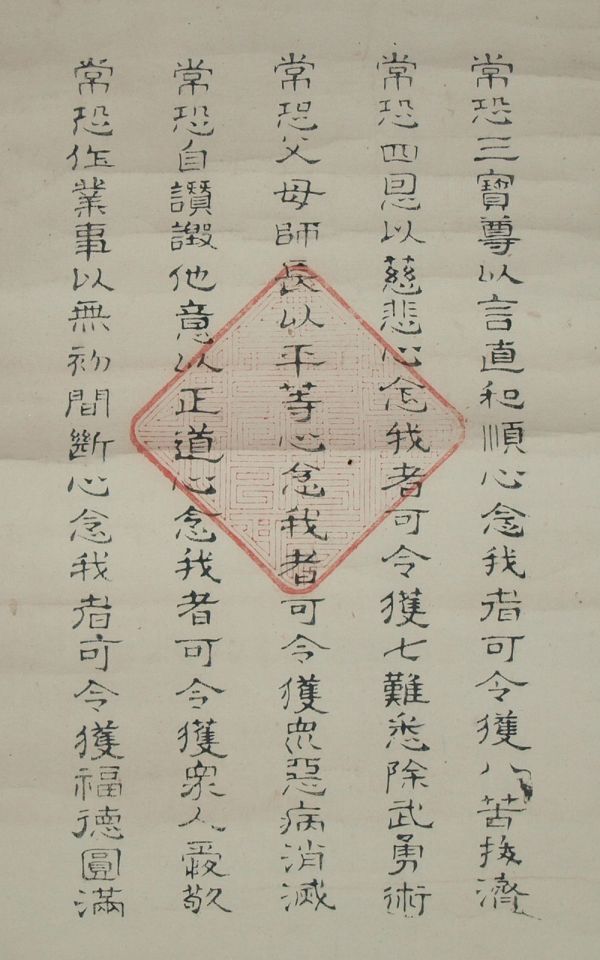 常恐三寶尊以言直和順心念我者可令獲八苦拔濟
常恐四恩以慈悲心念我者可令獲七難悉除武勇術
常恐父母師長以平等心念我者可令獲衆惡病消滅
常恐自讚譭他意以正道心念我者可令獲衆人愛敬
常恐作業事以無初間斷心念我者可令獲福徳圓滿